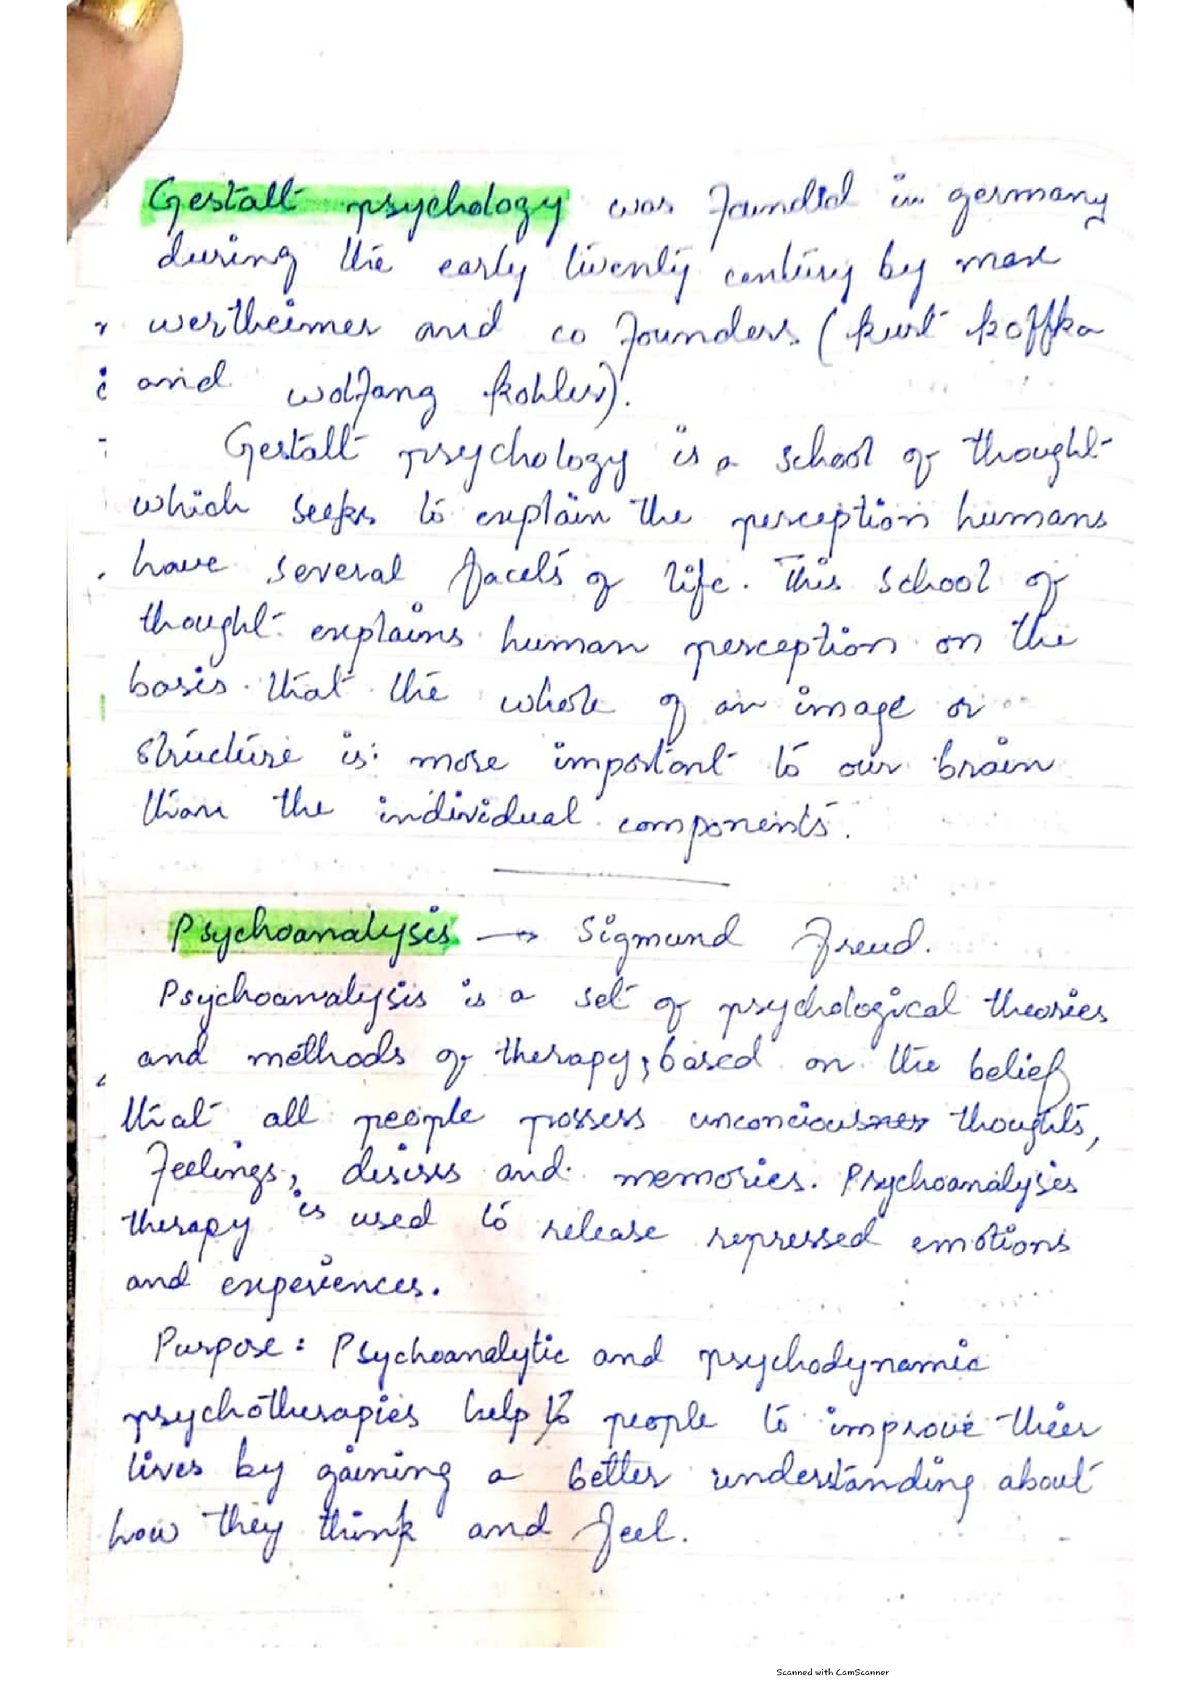 Gestalt psychology was founded in germany
during the early twenty century by max
wertheimer and co founders (kurt koffka
and wolfang kohler).
Gestalt psychology is a school of thought
which seeks to explain the perception humans
have several facets of life. This school of
thought explains human perception on the
basis that the whole of an image or
structure is more important to our brain
than the individual components.
Psychoanalysis → Sigmund Freud.
Psychoanalysis is a set of psychological theories
and methods of therapy, based on the belief
that all people possess unconcious thoughts,
Feelings, desires and memories. Psychoanalysis
therapy is used to release repressed emotions
and experiences.
Purpose: Psychoanalytic and psychodynamic
psychotherapies help people to improve their
lives by gaining a better understanding about
how they think and feel.
Scanned with CamScanner